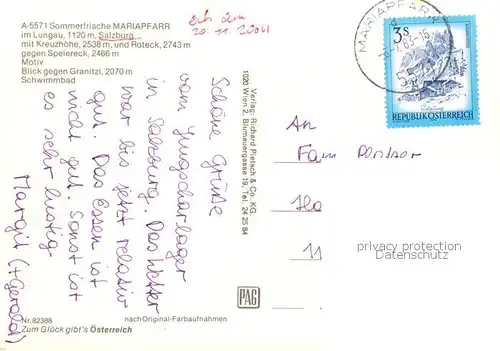 A-5571 Sommerfrische MARIAPFARR
im Lungau, 1120 m, Salzburg
mit Kreuzhöhe, 2538 m, und Roteck, 2743 m
gegen Speiereck, 2466 m
Motiv
Blick gegen Granitzl, 2070 m
Schwimmbad
erh. am
20. 11. 2006
Schöne Grüße
vom Jungscharlager
in Salzburg. Das Wetter
war bis jetzt relativ
gut. Das Essen ist
nicht gut. Sonst ist
es sehr lustig
Margit (+Gerald)
Verlag: Richard Pietsch & Co. KG.
1020 Wien 2, Blumauergasse 19, Tel. 24 25 84
MARIAPFARR
5571
3S
REPUBLIK ÖSTERREICH
An
Fam
11
privacy protection
Datenschutz
PAG
Nr. 82388
nach Original-Farbaufnahmen
Zum Glück gibt's Österreich